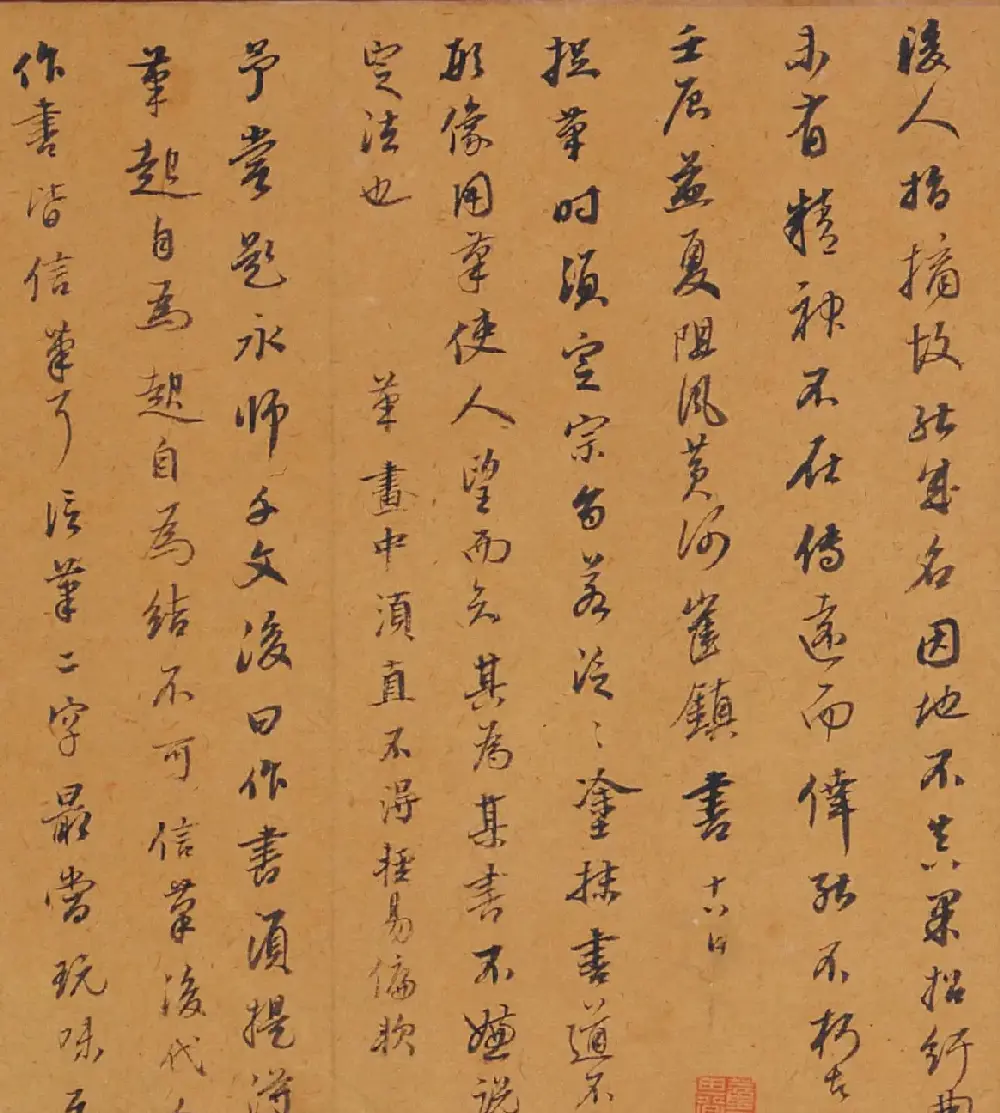 後人指摘故能成名因地不真果招紆曲
未有精神不在傳遠而偉能不朽
壬辰孟夏阻風黃河崔鎮書十八日
捉筆時須定宗旨若泛〻塗抹書道不
形像用筆使人望而知其為某書不嫌說
定法也 筆畫中須直不得輕易偏軟
予嘗題永師千文後曰作書須提得
筆起自為起自為結不可信筆後代
作書皆信筆耳信筆二字最當玩味